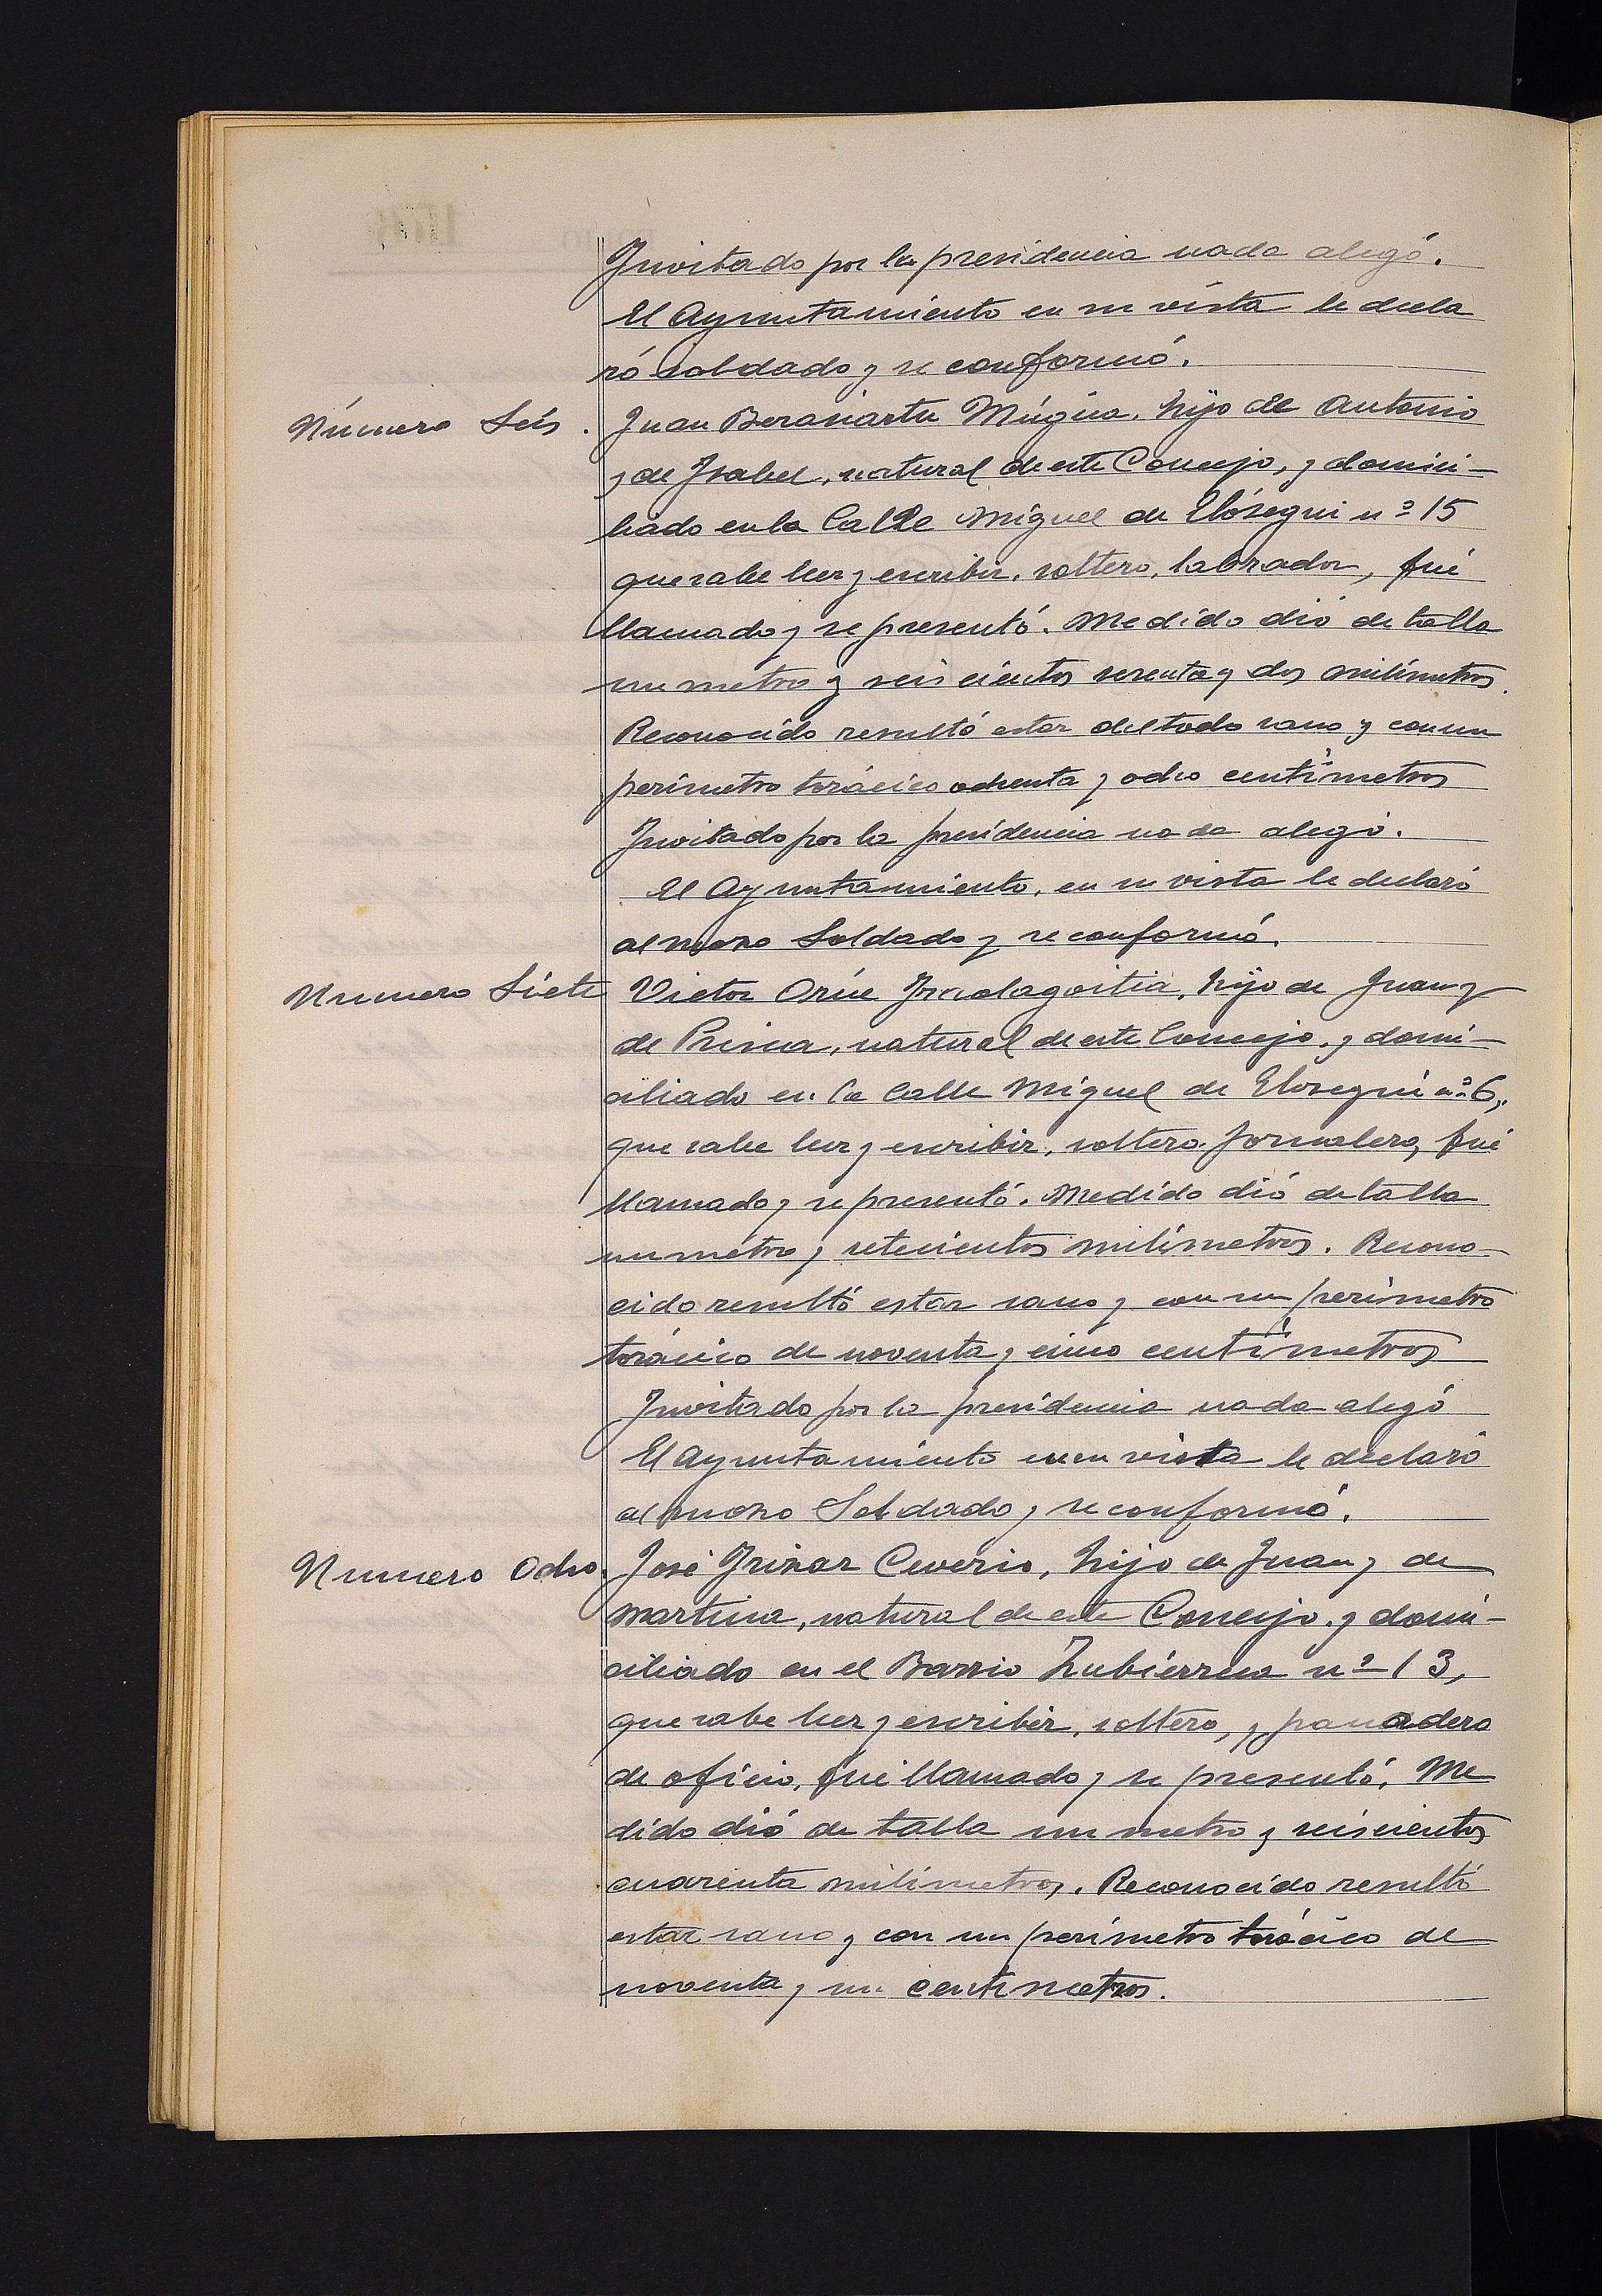 Invitado por la presidencia nada alegó.
El Ayuntamiento en su vista le decla
ró soldado y se conformó.
Número Seis. Juan Berasiartu Múgica, hijo de Antonio
y de Isabel, natural de este Concejo, y domici-
liado en la Calle Miguel de Elósegui nº 15
que sabe leer y escribir, soltero, labrador, fué
llamado y se presentó. Medido dió de talla
un metro y seis cientos sesenta y dos milímetros.
Reconocido resultó estar del todo sano y con un
perímetro torácico ochenta y ocho centímetros
Invitado por la presidencia nada alegó.
El Ayuntamiento, en su vista le declaró
al mozo Soldado y se conformó.
Numero Siete Victor Orúe hijo de Juan y
de Prisca, natural de este Concejo, y domi-
ciliado en la Calle Miguel de Elosegui nº 6,
que sabe leer y escribir, soltero. Jornalero, fué
llamado y se presentó. Medido dió de talla
un métro y setecientos milímetros. Recono-
cido resultó estar sano y con un perímetro
torácico de noventa y cinco centímetros
Invitado por la presidencia nada alegó
El Ayuntamiento en su vista le declaró
al mozo Soldado y se conformó.
Numero Ocho. José Irizar Ceverio, hijo de Juan y de
Martina, natural de este Concejo, y domi-
ciliado en el Barrio Zubierreca nº 13,
que sabe leer y escribir, soltero, y panadero
de oficio, fué llamado y se presentó. Me
dido dió de talla un metro y seiscientos
cuarenta milímetros. Reconocido resultó
estar sano y con un perímetro torácico de
noventa y un centímetros.